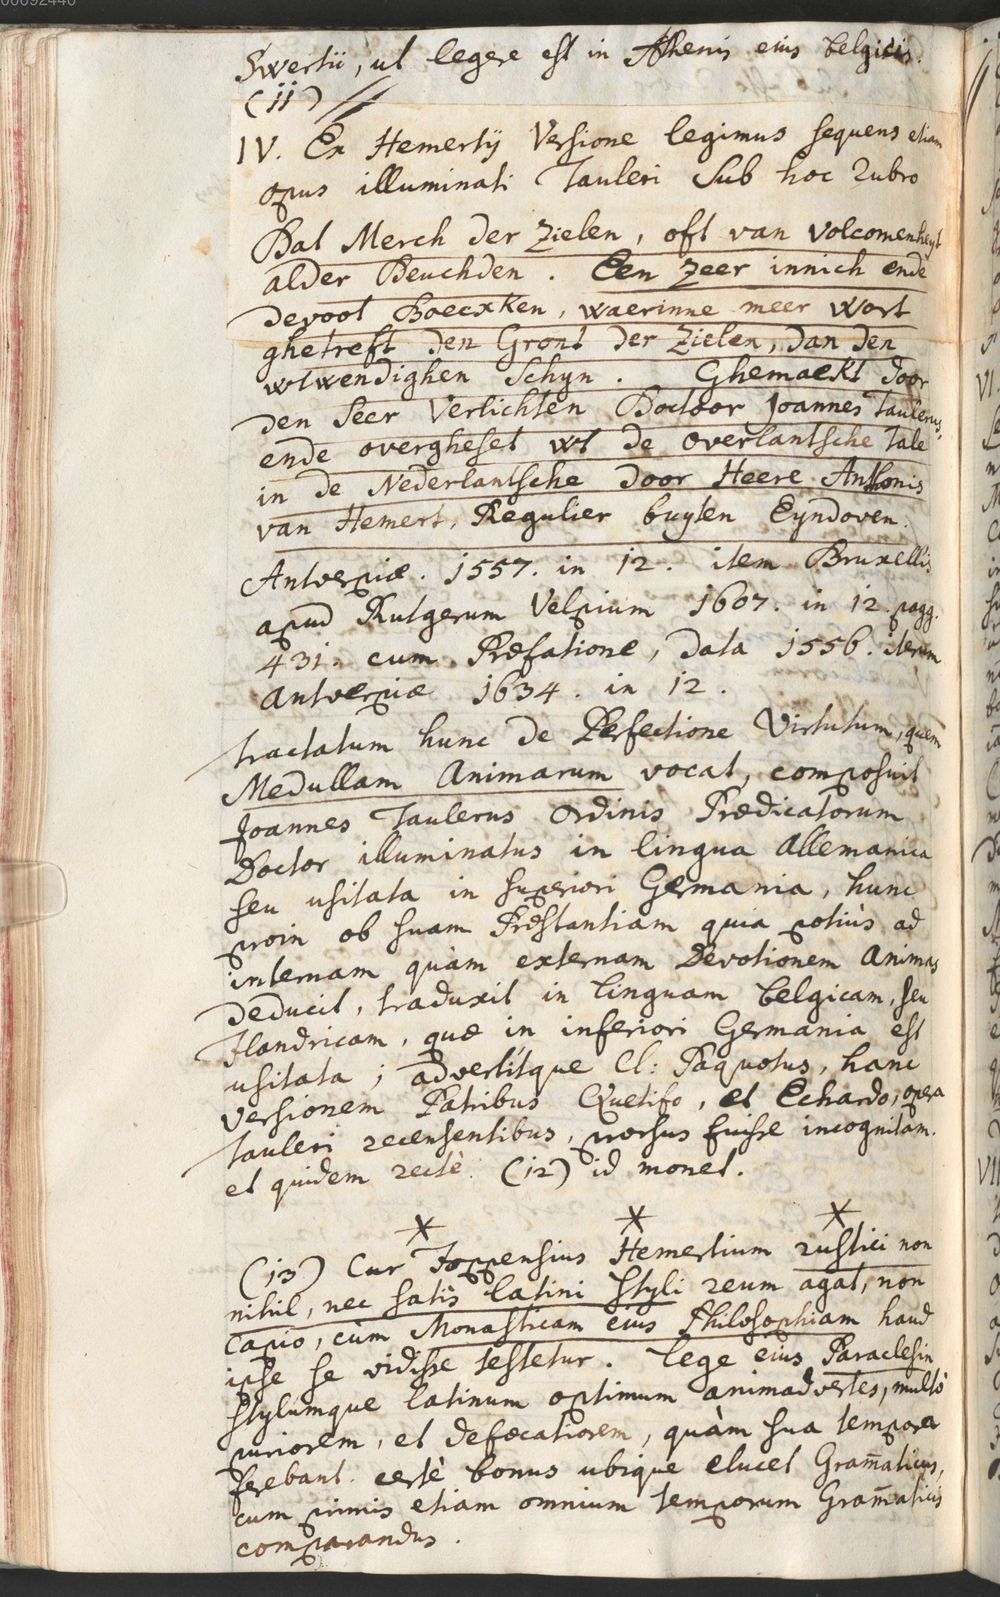 00092440
Swertii, ut legere est in Athenis eius belgicis.
(11)
IV. Ex Hemertij Versione legimus sequens etiam
opus illuminati Tauleri sub hoc rubro
Dat Merch der zielen, oft van volcomenheyt
alder Deuchden. Een zeer innich ende
devoot Boecxken, waerinne meer wort
ghetreft den Gront der Zielen, dan den
wtwendighen Schyn. Ghemaekt door
den seer Verlichten Doctoor Joannes Taulerus,
ende overgheset wt de overlantsche tale
in de Nederlantsche door Heere Anthonis
van Hemert, Regulier buyten Eyndoven.
Antverpiæ. 1557. in 12. item Bruxellis
apud Rutgerum Velpium 1607. in 12. pagg.
431. cum Præfatione, data 1556. iterum
Antverpiæ 1634. in 12.
tractatum hunc de Perfectione Virtutum, quem
Medullam Animarum vocat, composuit
Joannes Taulerus Ordinis Prædicatorum
Doctor illuminatus in lingua Allemanica
seu usitata in superiori Germania, hunc
proin ob suam Præstantiam quia potiùs ad
internam quàm externam Devotionem animas
deducit, traduxit in linguam belgicam, seu
flandricam, quæ in inferiori Germania est
usitata; advertitque Cl: Paquotus, hanc
versionem Patribus Quetifo, et Echardo, opera
Tauleri recensentibus, prorsus fuisse incognitam.
et quidem rectè (12) id monet.
* * *
(13) Cur Foppensius Hemertium rustici non
nihil, nec satis latini styli reum agat, non
capio, cùm Monasticam eius Philosophiam haud
ipse se vidisse testetur. lege eius Paraclesin
stylumque latinum optimum animadvertes, multò
puriorem, et defæcatiorem, quàm sua tempora
ferebant. certè bonus ubique elucet Gram̄aticus,
cum primis etiam omnium temporum Gram̄aticis
comparandus.